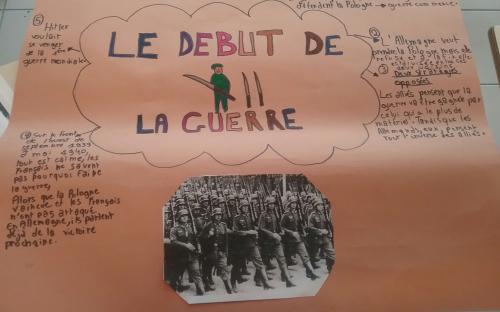 défendent la Pologne → guerre commence.
LE DEBUT DE
LA GUERRE
⑤ Hitler
voulait
se venger
de la 1ère
guerre mondiale
② L'Allemagne veut
prendre la Pologne mais
refuse
③ Deux stratégies
opposées
Les alliés pensent que la
guerre va être gagnée par
celui qui a le plus de
matériel, tandis que les
Allemands, eux, pensent
④ Sur le front
de l'ouest de
septembre 1939
à mai 1940,
tout est calme, les
français ne savent
pas pourquoi faire
la guerre,
Alors que la Pologne
vaincue et les français
n'ont pas attaqué
en Allemagne, ils parlent
déjà de la victoire
prochaine.